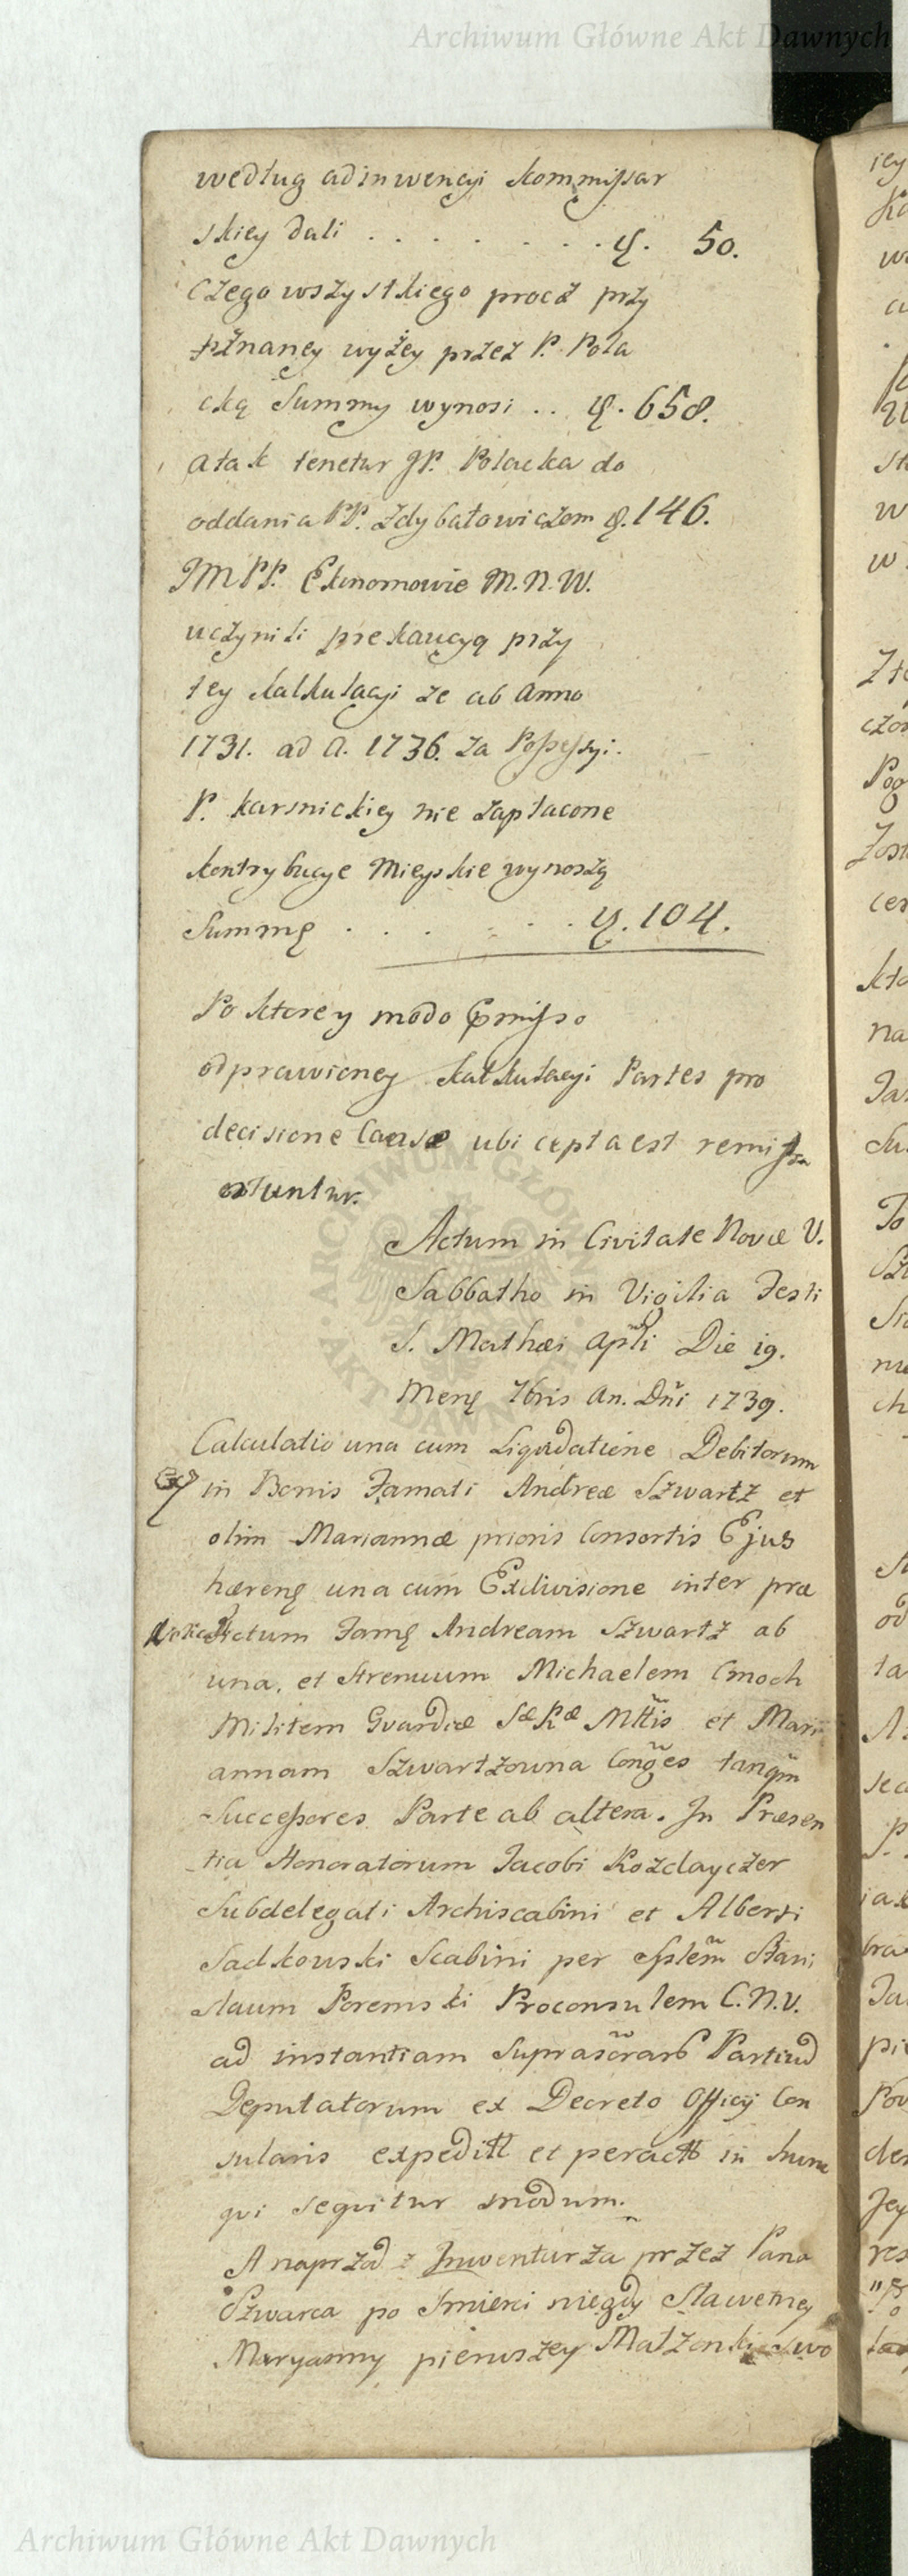 Archiwum Główne Akt Dawnych
według adinwencyi kommissar
skiey dali . . . . . . . . . . 50.
czego wszystkiego procz przy
znaney wyżey przez P. Pola
cką Summy wynosi . . 658.
a tak tenetur JP. Polacka do
oddania PP. Zdybałowiczom 146.
JMPP. Ekonomowie M. N. W.
uczynili prekaucyą przy
tey kalkulacyi ze ab Anno
1731. ad A. 1736. za Possessyi.
P. karsnickiey nie zapłacone
kontrybucye Mieyskie wynoszą
Summę . . . . . . . 104.
Po ktorey modo præmisso
odprawioney kalkulacyi Partes pro
decisione Causæ ubi cepta est remi
ttuntur.
Actum in Civitate Novæ V.
Sabbatho in Vigilia Festi
S. Mathæi Apli Die 19.
Mens 7bris An. Dni 1739.
Calculatio una cum Liquidatione Debitorum
in Bonis Famati Andreæ Szwartz et
olim Mariannæ prioris Consortis Ejus
hæren una cum Exdivisione inter præ
dictum Fam Andream Szwartz ab
una, et Strenuum Michaelem Cmoch
Militem Gvardiæ Sæ Ræ Mttis et Mari
annam Szwartzowna Conges tanqm
Successores Parte ab altera. In Præsen
tia Honoratorum Jacobi Kozdayczer
Subdelegati Archiscabini et Alberti
Sadkowski Scabini per Splem Stani
slaum Poremski Proconsulem C. N. V.
ad instantiam Suprascrarb Partiu
Deputatorum ex Decreto Officij Con
sularis expedit et peract in hunc
qui sequitur modum.
A naprzod z Inwenturza przez Pana
Szwarca po śmierci niegdy Sławetney
Maryanny pierwszey Małzonki swo
ARCHIWUM GŁÓWNE AKT DAWNYCH
Archiwum Główne Akt Dawnych